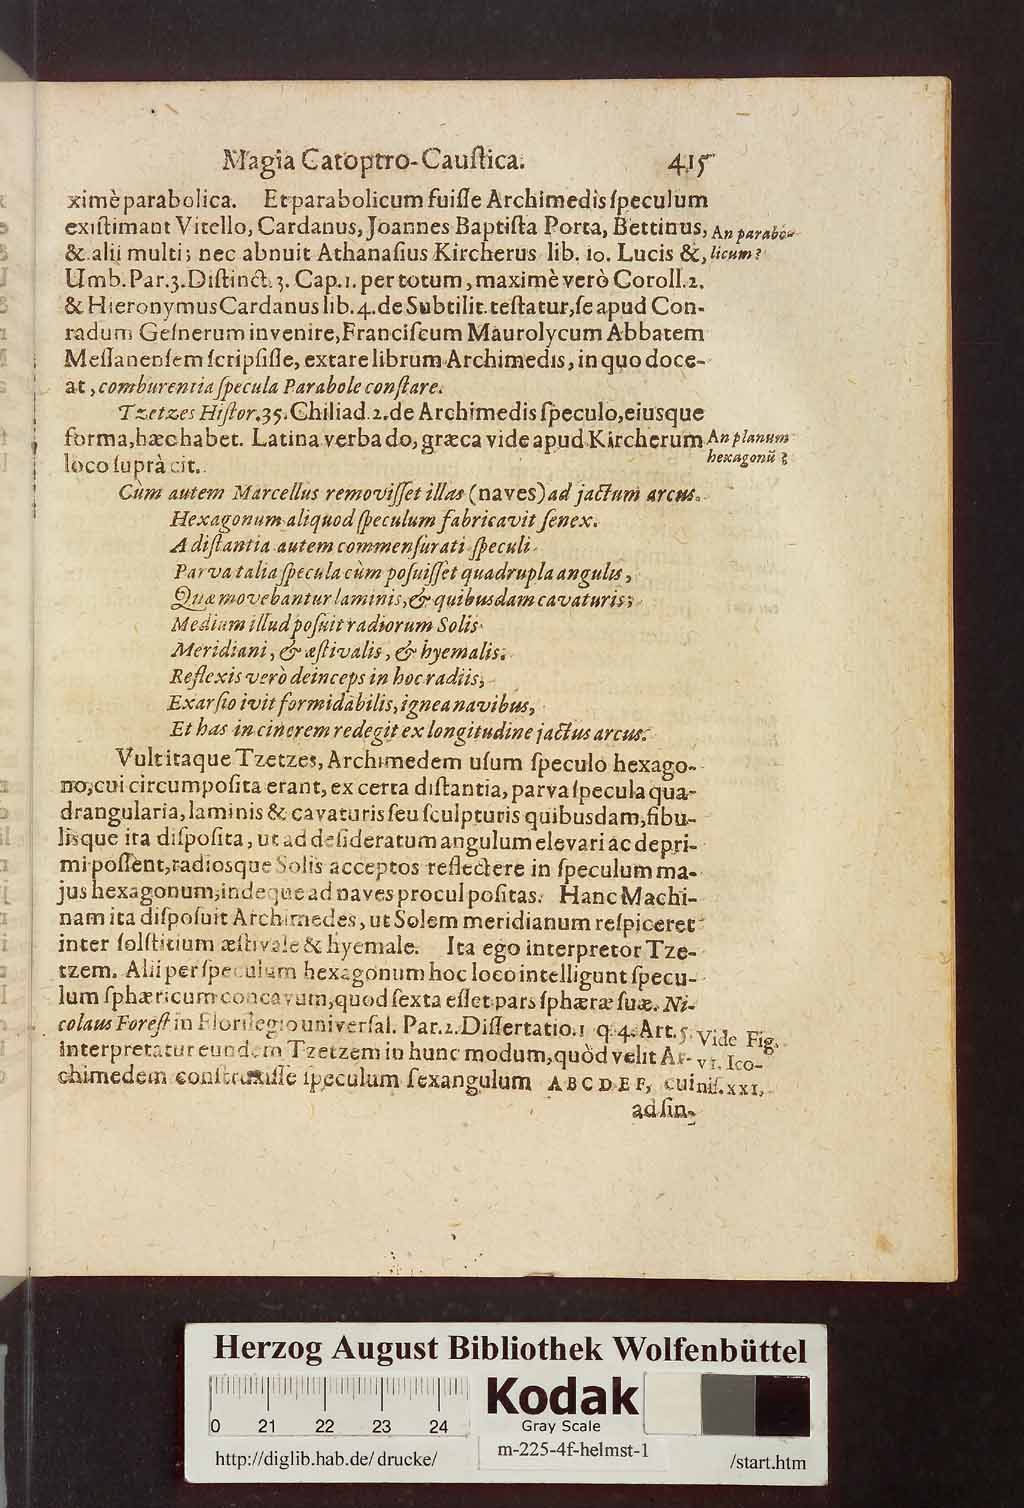 Magia Catoptro-Cauſtica. 415
ximè parabolica. Et parabolicum fuiſſe Archimedis ſpeculum
exiſtimant Vitello, Cardanus, Joannes Baptiſta Porta, Bettinus,
An parabo-
& alii multi; nec abnuit Athanaſius Kircherus lib. 10. Lucis &
licum?
Umb. Par. 3. Diſtinct. 3. Cap. 1. per totum, maximè verò Coroll. 2.
& Hieronymus Cardanus lib. 4. de Subtilit. teſtatur, ſe apud Con-
radum Geſnerum invenire, Franciſcum Maurolycum Abbatem
Meſſanenſem ſcripſiſſe, extare librum Archimedis, in quo doce-
at, comburentia ſpecula Parabole conſtare.
Tzetzes Hiſtor. 35. Chiliad. 2. de Archimedis ſpeculo, eiusque
forma, hæc habet. Latina verba do, græca vide apud Kircherum
An planum
hexagonũ?
loco ſuprà cit.
Cùm autem Marcellus removiſſet illas (naves) ad jactum arcus.
Hexagonum aliquod ſpeculum fabricavit ſenex.
A diſtantia autem commenſurati ſpeculi
Parva talia ſpecula cùm poſuiſſet quadrupla angulis,
Quæ movebantur laminis, & quibusdam cavaturis;
Medium illud poſuit radiorum Solis
Meridiani, & æſtivalis, & hyemalis.
Reflexis verò deinceps in hoc radiis,
Exarſio ivit formidabilis, ignea navibus,
Et has in cinerem redegit ex longitudine jactus arcus.
Vult itaque Tzetzes, Archimedem uſum ſpeculo hexago-
no, cui circumpoſita erant, ex certa diſtantia, parva ſpecula qua-
drangularia, laminis & cavaturis ſeu ſculpturis quibusdam, fibu-
lisque ita diſpoſita, ut ad deſideratum angulum elevari ac depri-
mi poſſent, radiosque Solis acceptos reflectere in ſpeculum ma-
jus hexagonum, indeque ad naves procul poſitas. Hanc Machi-
nam ita diſpoſuit Archimedes, ut Solem meridianum reſpiceret
inter ſolſtitium æſtivale & hyemale. Ita ego interpretor Tze-
tzem. Alii per ſpeculum hexagonum hoc loco intelligunt ſpecu-
lum ſphæricum concavum, quod ſexta eſſet pars ſphæræ ſuæ. Ni-
colaus Foreſt in Florilegio univerſal. Par. 2. Diſſertatio. 1 q. 4. Art. 5.
Vide Fig.
interpretatur eundem Tzetzem in hunc modum, quòd velit Ar-
VI. Ico-
chimedem conſtruxiſſe ſpeculum ſexangulum ABCDEF, cui
niſ. XXI,
ad ſin-
Herzog August Bibliothek Wolfenbüttel
0 21 22 23 24
Kodak
Gray Scale
http://diglib.hab.de/ drucke/
m-225-4f-helmst-1
/start.htm